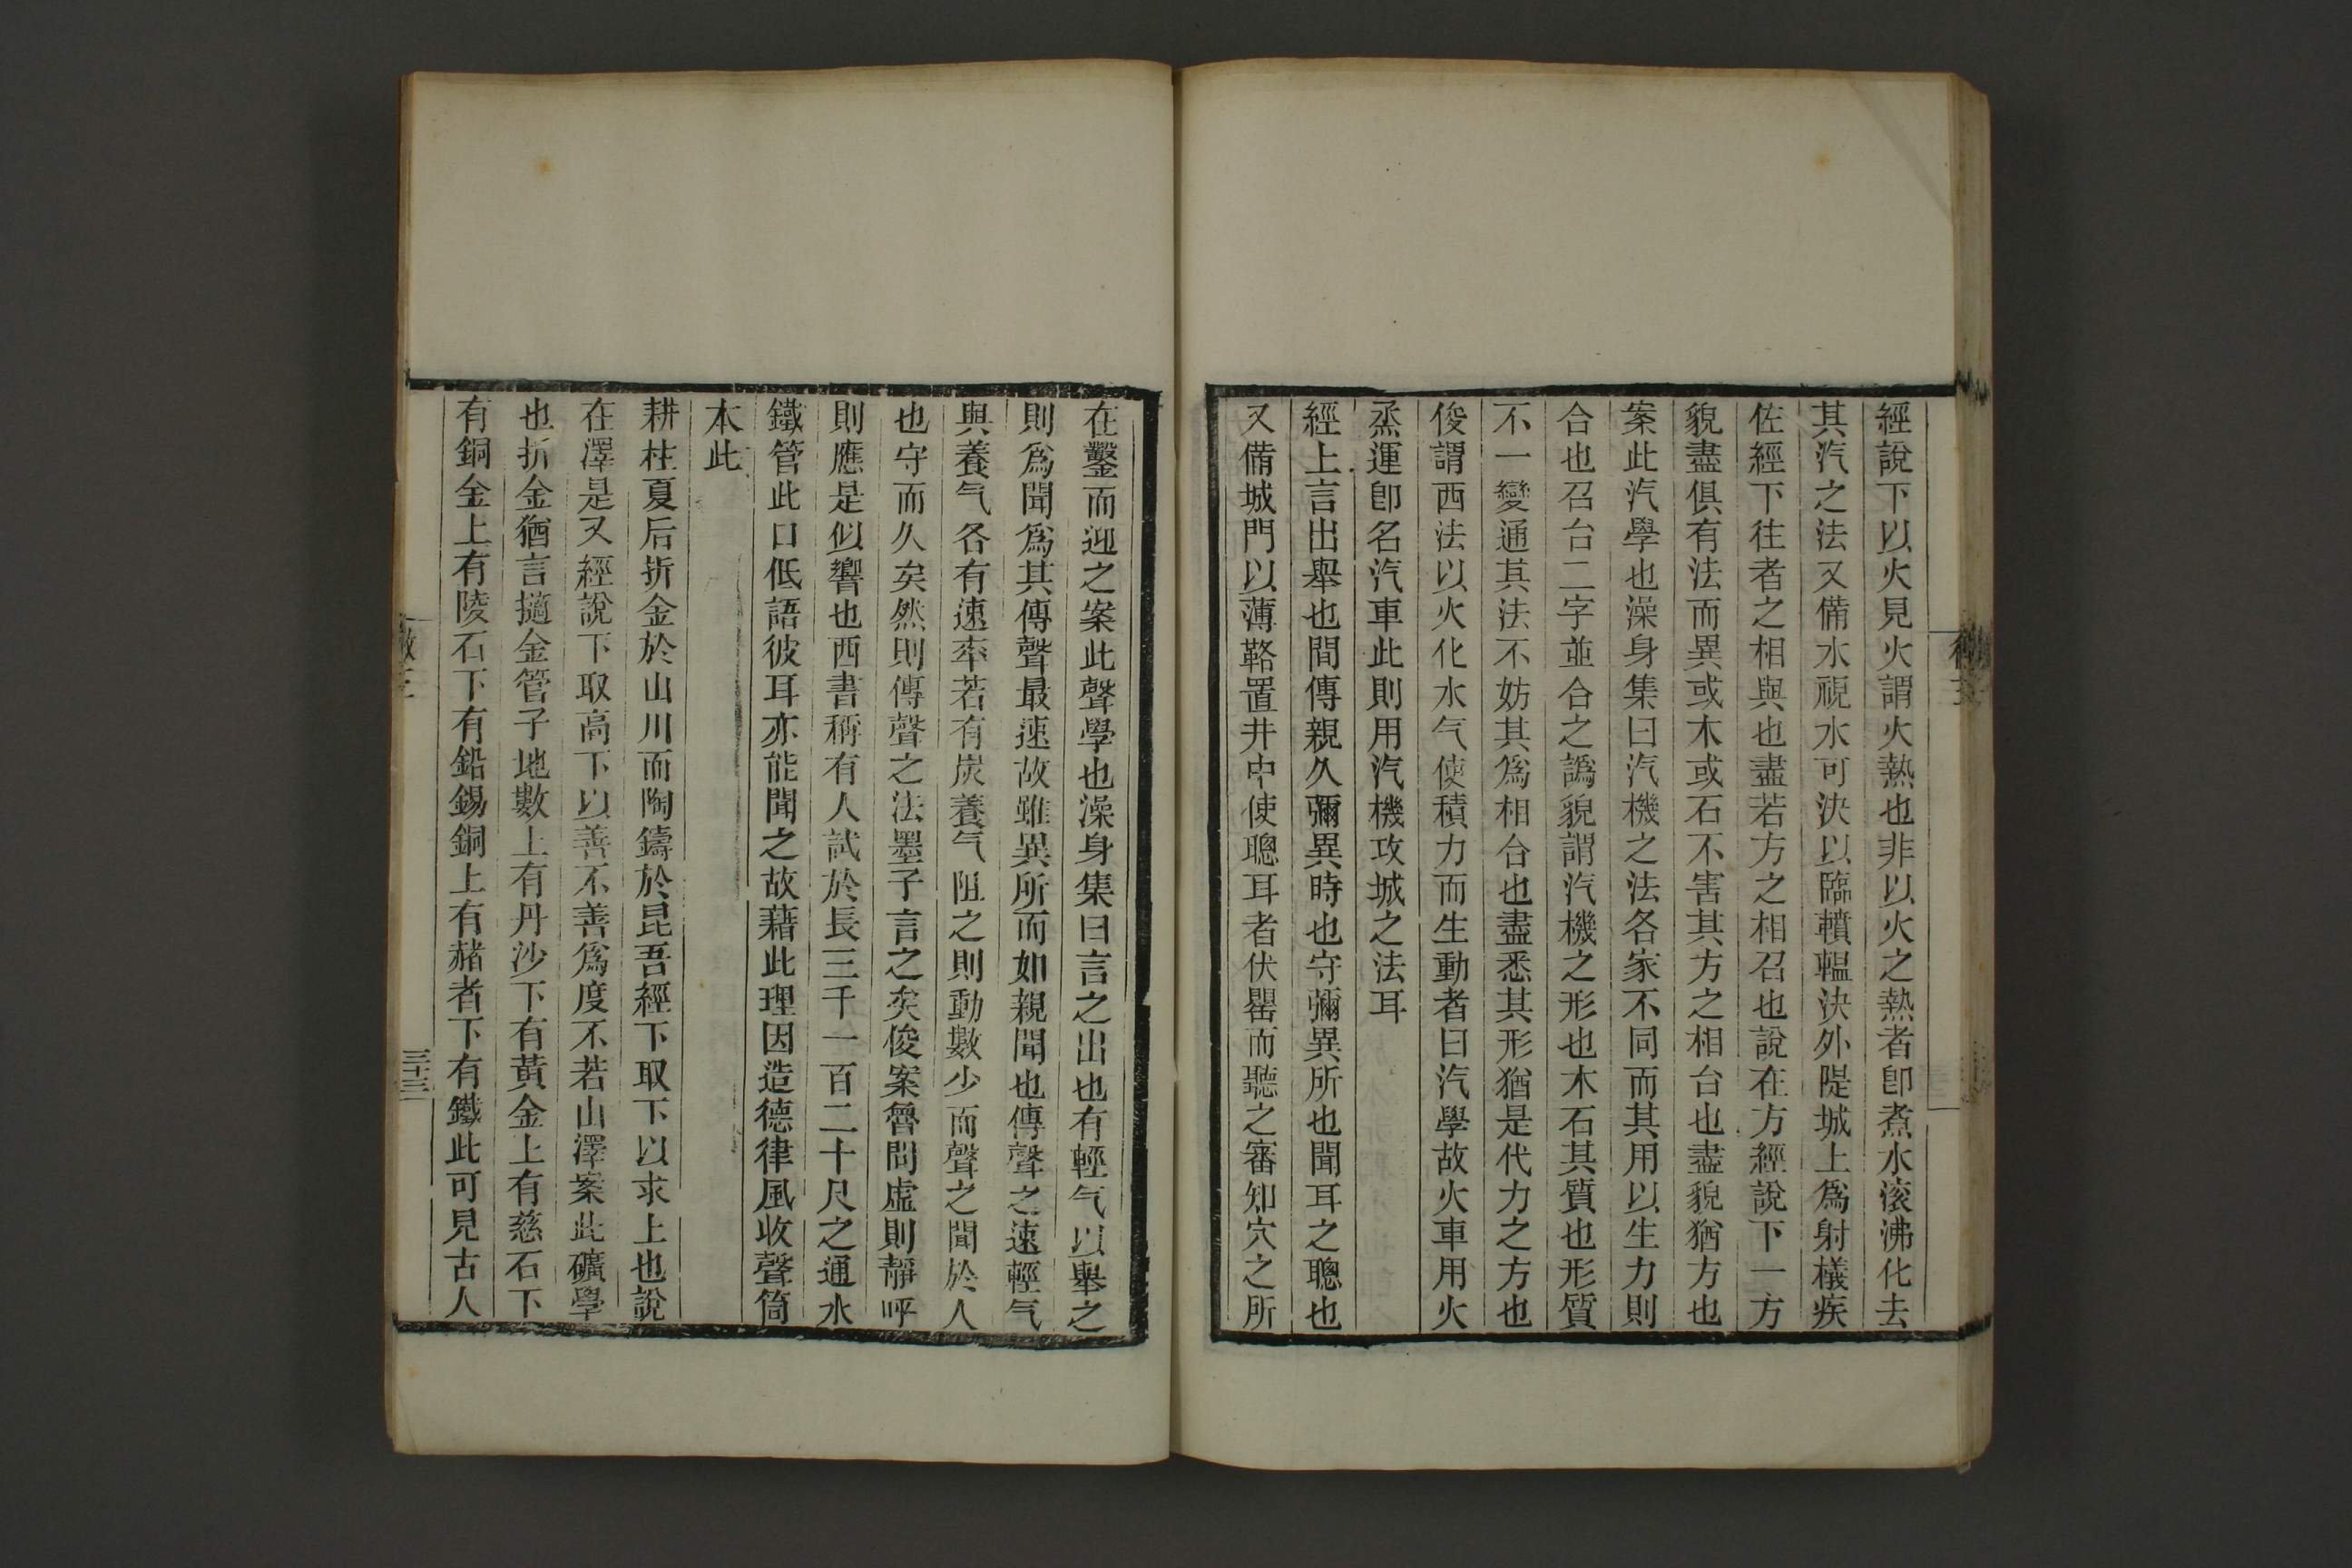 經說下以火見火謂火熱也非以火之熱者卽煮水滚沸化去
其汽之法又備水視水可決以臨轒轀決外隄城上爲射檥疾
佐經下往者之相與也盡若方之相召也說在方經說下一方
貌盡俱有法而異或木或石不害其方之相台也盡貌猶方也
案此汽學也澡身集曰汽機之法各家不同而其用以生力則
合也召台二字並合之譌貌謂汽機之形也木石其質也形質
不一變通其法不妨其爲相合也盡悉其形猶是代力之方也
俊謂西法以火化水气使積力而生動者曰汽學故火車用火
烝運卽名汽車此則用汽機攻城之法耳
經上言出舉也間傳親久彌異時也守彌異所也聞耳之聰也
又備城門以薄䩭置井中使聰耳者伏罌而聽之審知穴之所
在鑿而迎之案此聲學也澡身集曰言之出也有輕气以舉之
則爲聞爲其傳聲最速故雖異所而如親聞也傳聲之速輕气
與養气各有速率若有炭養气阻之則動數少而聲之聞於人
也守而久矣然則傳聲之法墨子言之矣俊案魯問虛則靜呼
則應是似響也西書稱有人試於長三千一百二十尺之通水
鐵管此口低語彼耳亦能聞之故藉此理因造德律風收聲筒
本此
耕柱夏后折金於山川而陶鑄於昆吾經下取下以求上也說
在澤是又經說下取高下以善不善爲度不若山澤案此礦學
也折金猶言擿金管子地數上有丹沙下有黃金上有慈石下
有銅金上有陵石下有鉛錫銅上有赭者下有鐵此可見古人
三十三